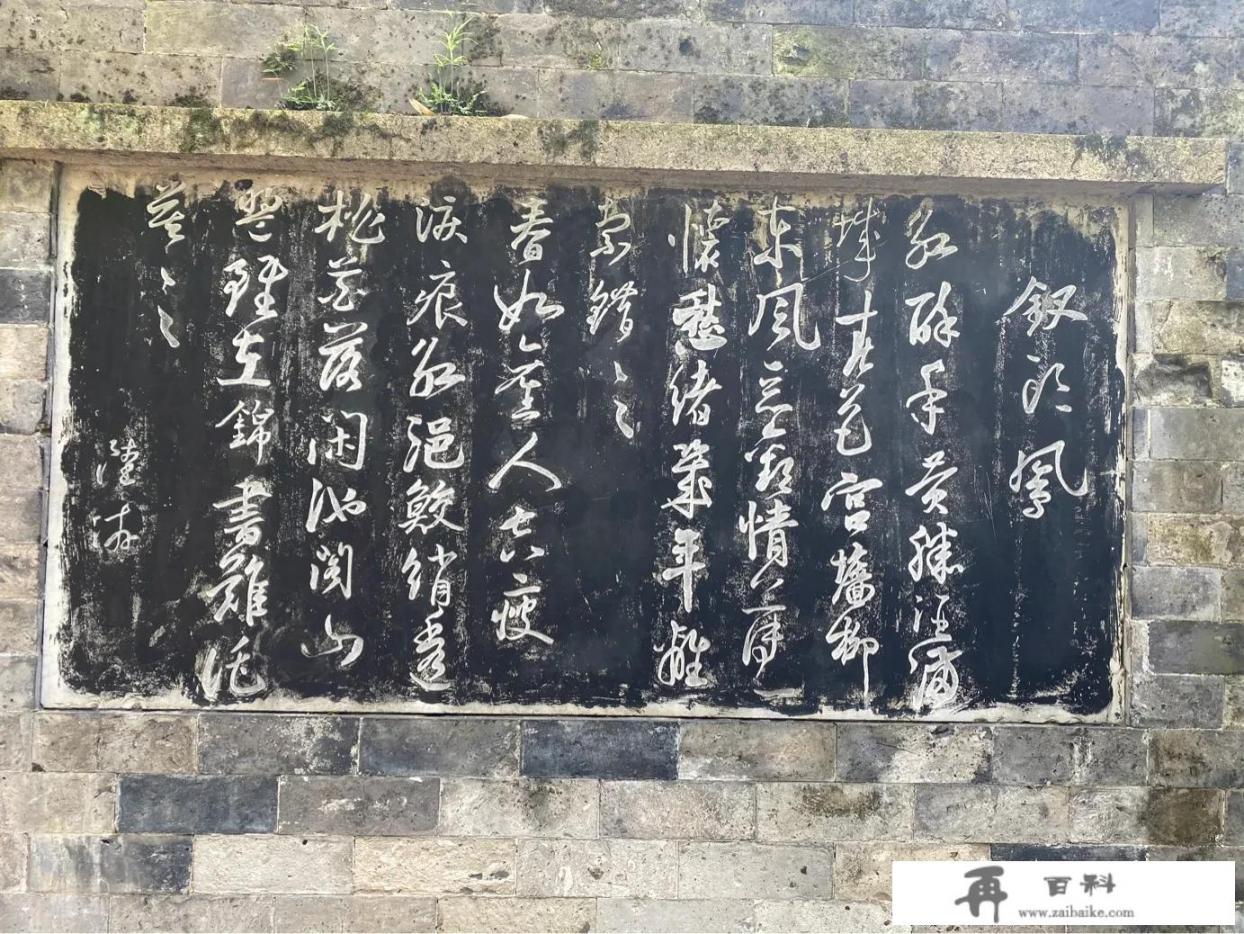 釵頭鳳
紅酥手黃縢酒滿
城春色宮墻柳
東風惡歡情薄一
懷愁緒幾年離
索錯々々
春如舊人空瘦
淚痕紅浥鮫綃透
桃花落閑池閣山
盟雖在錦書難託
莫々々
陸游
再 百科
www.zaibaike.com